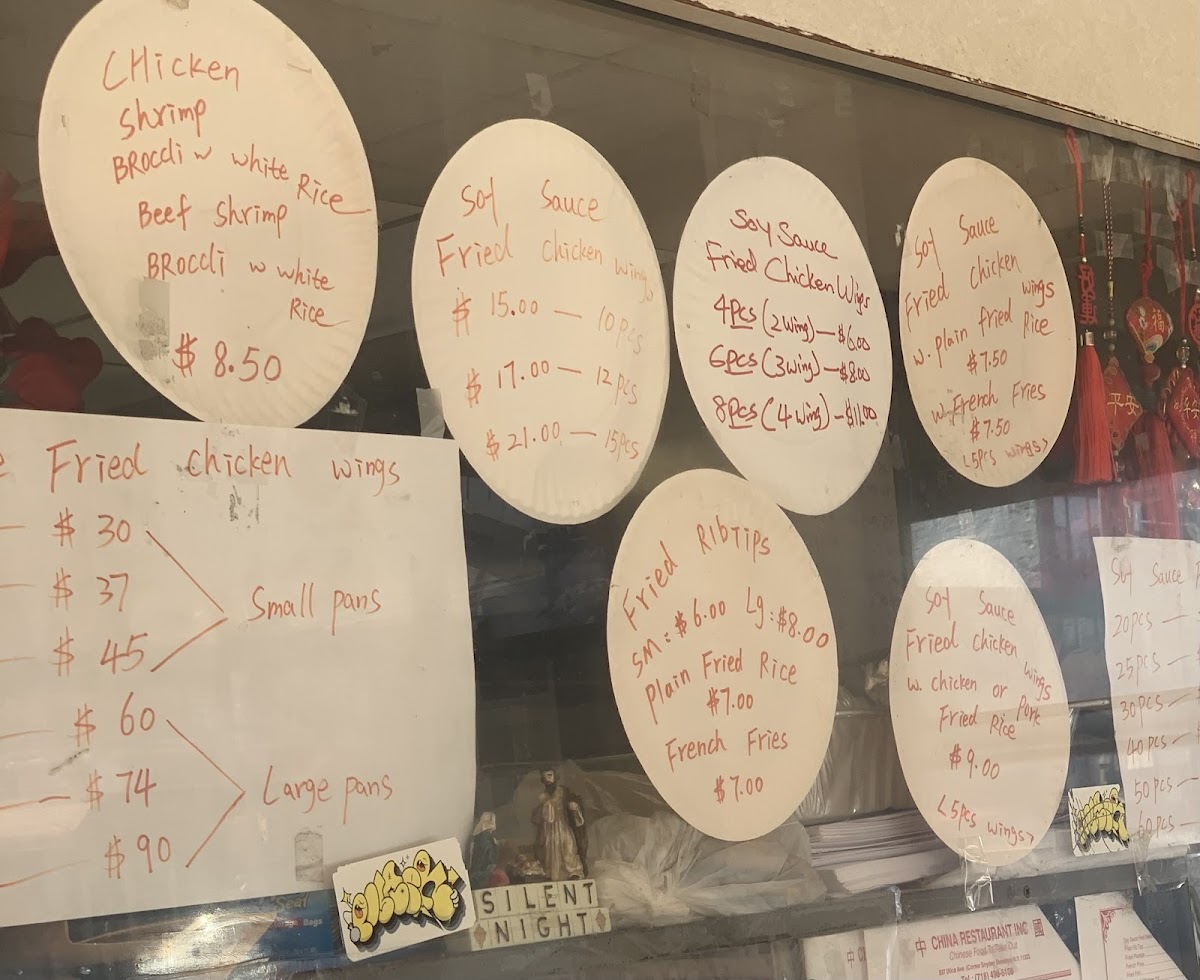 CHicken
Shrimp
BROccli w white
Rice
Beef Shrimp
BROccli w white
Rice
$ 8.50
Soy Sauce
Fried chicken wings
$ 15.00 — 10pcs
$ 17.00 — 12pcs
$ 21.00 — 15pcs
Soy Sauce
Fried Chicken Wigs
4Pcs (2wing) — $6.00
6pcs (3wing) — $8.00
8pcs (4wing) — $11.00
Soy Sauce
Fried chicken
wings
w. plain fried Rice
$7.50
w. French Fries
$7.50
<5pcs wings>
福
平安
e Fried chicken wings
$ 30
$ 37
$ 45
Small pans
$ 60
$ 74
$ 90
Large pans
Fried RIBTIPS
SM: $6.00 Lg: $8.00
Plain Fried Rice
$7.00
French Fries
$7.00
Soy Sauce
Fried chicken
wings
w. chicken or pork
Fried Rice
$9.00
<5pcs wings>
Soy Sauce
20pcs —
25pcs —
30pcs —
40pcs —
50pcs —
60pcs —
Seal
Bags
SILENT
NIGHT
中 CHINA RESTAURANT INC 國
Chinese Food To Take Out